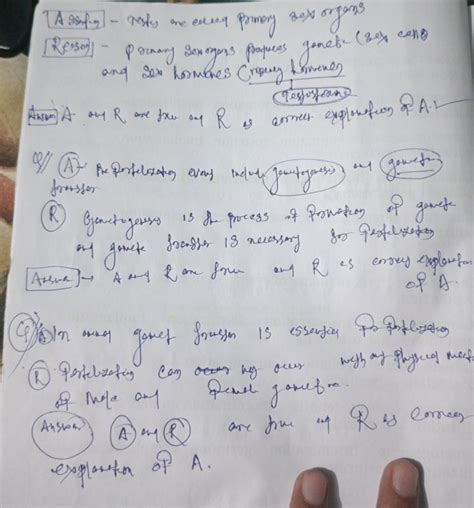 [Assertion] - Testes are called primary sex organs
[Reason] - Primary sex organs produces gamete (sex cells)
and sex hormones
Testosterone
[Answer] A and R are true and R is correct explanation of A.
Q/ (A) - Pre fertilization event include gametogenesis and gamete
transfer
(R) Gametogenesis is the process of formation of gamete
and gamete transfer is necessary for fertilization
[Answer] → A and R are true and R is correct explanation
of A.
Q/ (A) In gamet transfer is essential fertilization
(R) Fertilization can not occur without physical
of male and gamete.
(Answer) (A) and (R) are true and R is correct
explanation of A.